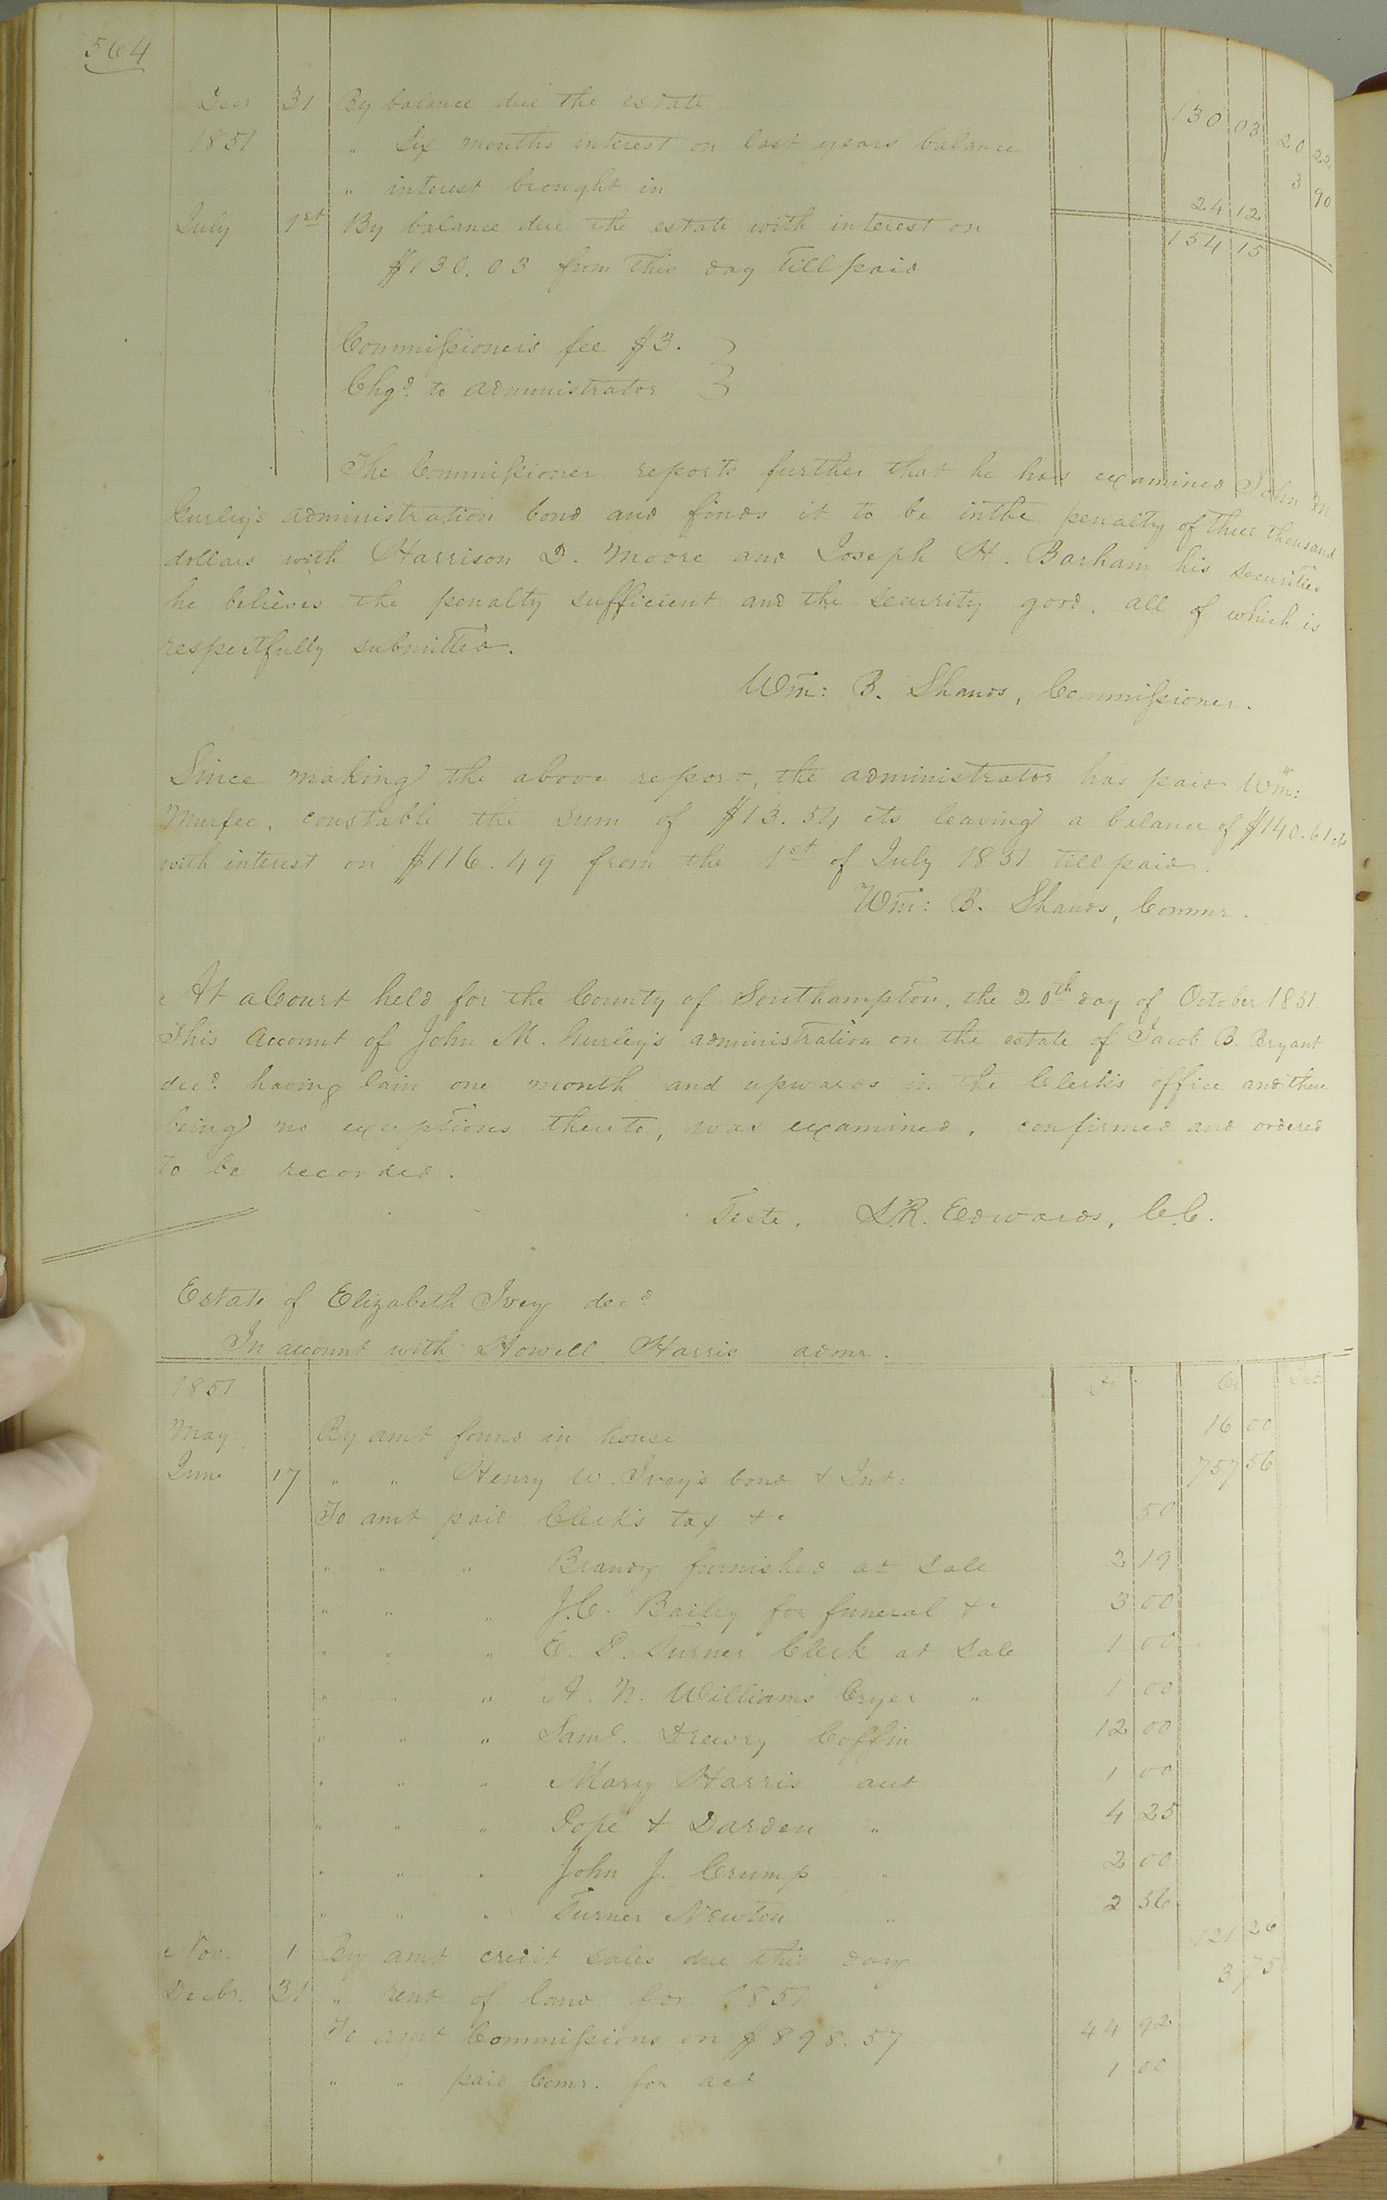 564
Decr 31 By balance due the estate 130 03
1851 " Six months interest on last years balance 20 22
" interest brought in 3 90
24 12
July 1st By balance due the estate with interest on 154 15
$130.03 from this day till paid
Commissioners fee $3.
Chgd. to administrator
The Commissioner reports further that he has examined John M.
Gurley's administration bond and finds it to be inthe penalty of three thousand
dollars with Harrison D. Moore and Joseph H. Barham his securities
he believes the penalty sufficient and the security good. all of which is
respectfully submitted.
Wm: B. Shands, Commissioner.
Since making the above report, the administrator has paid Wm:
Murfee, constable the sum of $13.54 cts leaving a balance of $140.61 cts
with interest on $116.49 from the 1st of July 1851 till paid.
Wm: B. Shands, Commr.
At a Court held for the County of Southampton, the 20th day of October 1851.
This Account of John M. Gurley's administration on the estate of Jacob B. Bryant
decd. having lain one month and upwards in the Clerk's office and there
being no exceptions thereto, was examined, confirmed and ordered
to be recorded.
Teste, L.R. Edwards, C.C.
Estate of Elizabeth Ivey decd
In account with Howell Harris admr.
1851 Cr
May By amt found in house 16 00
June 17 " " Henry W. Ivey's bond & Int: 757 56
To amt paid Clerk's tax &c 50
" " " Brandy furnished at sale 2 19
" " " J.C. Bailey for funeral &c 3 00
" " " E. D. Turner Clerk at sale 1 00
" " " A. N. Williams Cryer " 1 00
" " " Saml. Drewry Coffin 12 00
" " " Mary Harris act 1 00
" " " Pope & Darden " 4 25
" " " John J. Crump " 2 00
" " " Turner Newton " 2 56
Nov. 1 By amt credit sales due this day 121 26
Decbr. 31 " rent of land for 1851 3 75
To amt Commissions on $898.57 44 92
" " paid Comr. for act 1 00